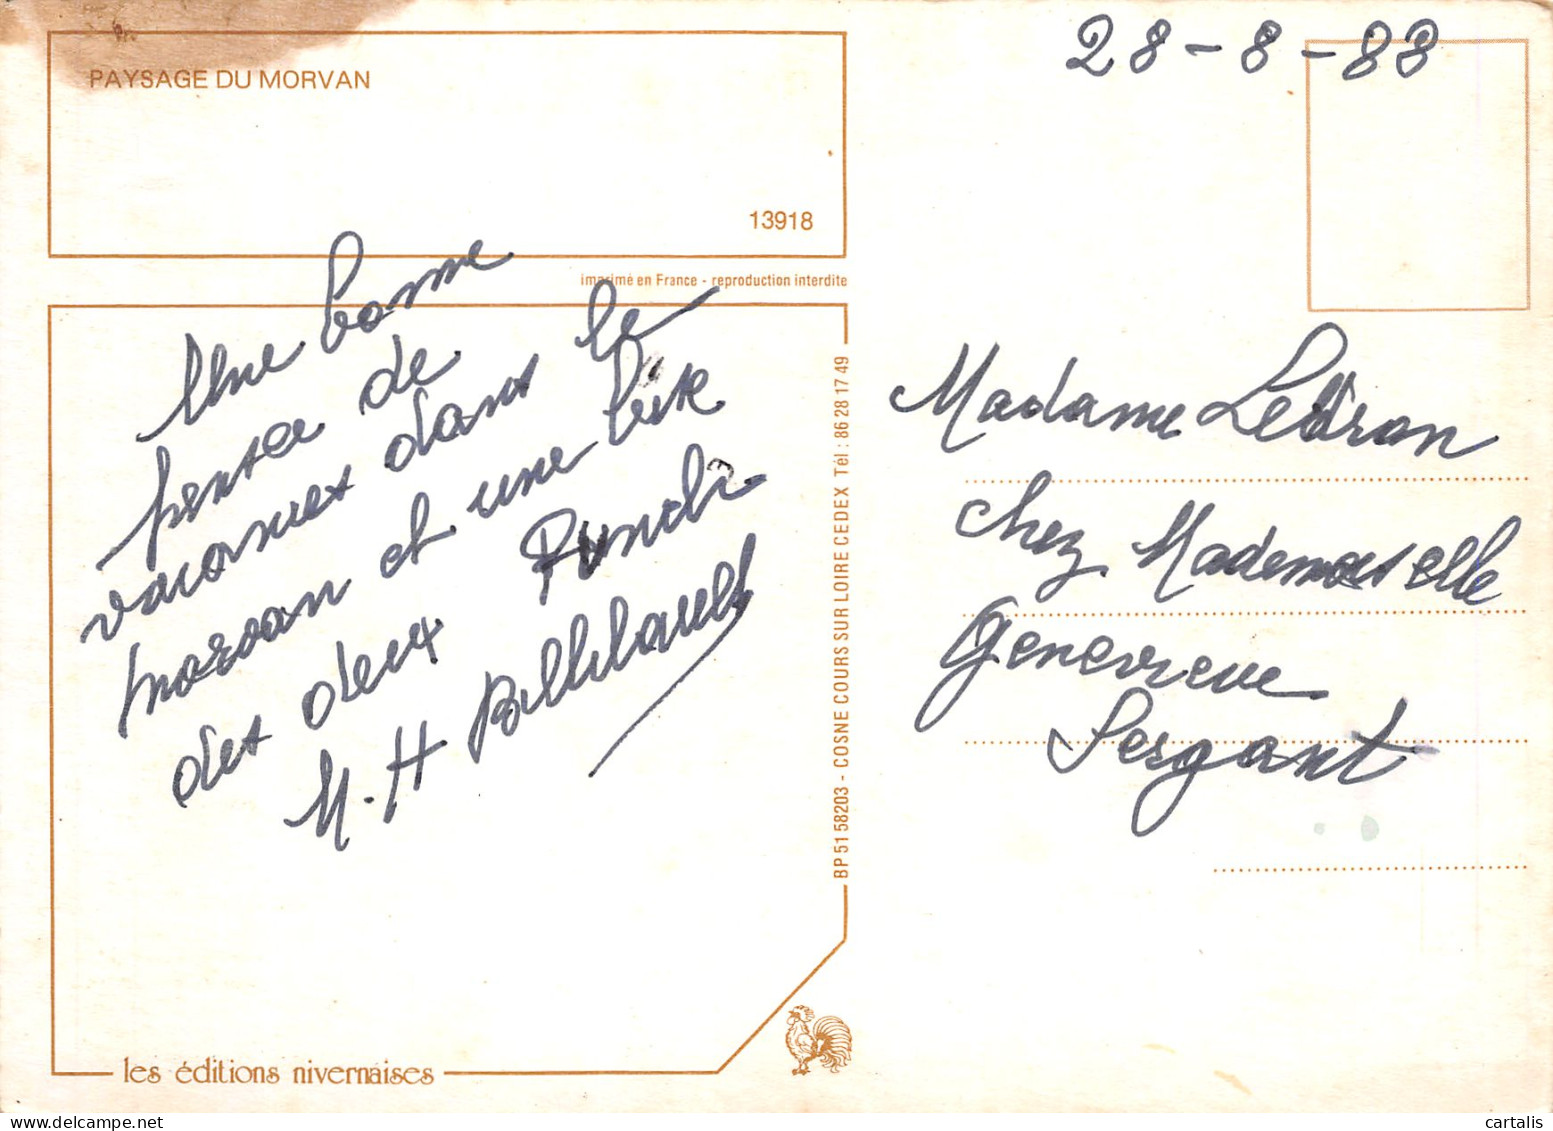 28-8-88
PAYSAGE DU MORVAN
13918
imprimé en France - reproduction interdite
Une bonne
pensée de
vacances dans le
morvan et une bise
des deux
M. H Billebault
BP 51 58203 - COSNE COURS SUR LOIRE CEDEX Tél : 86 28 17 49
Madame Ledran
chez Mademoiselle
Genevieve
Sergant
les éditions nivernaises
cartalis